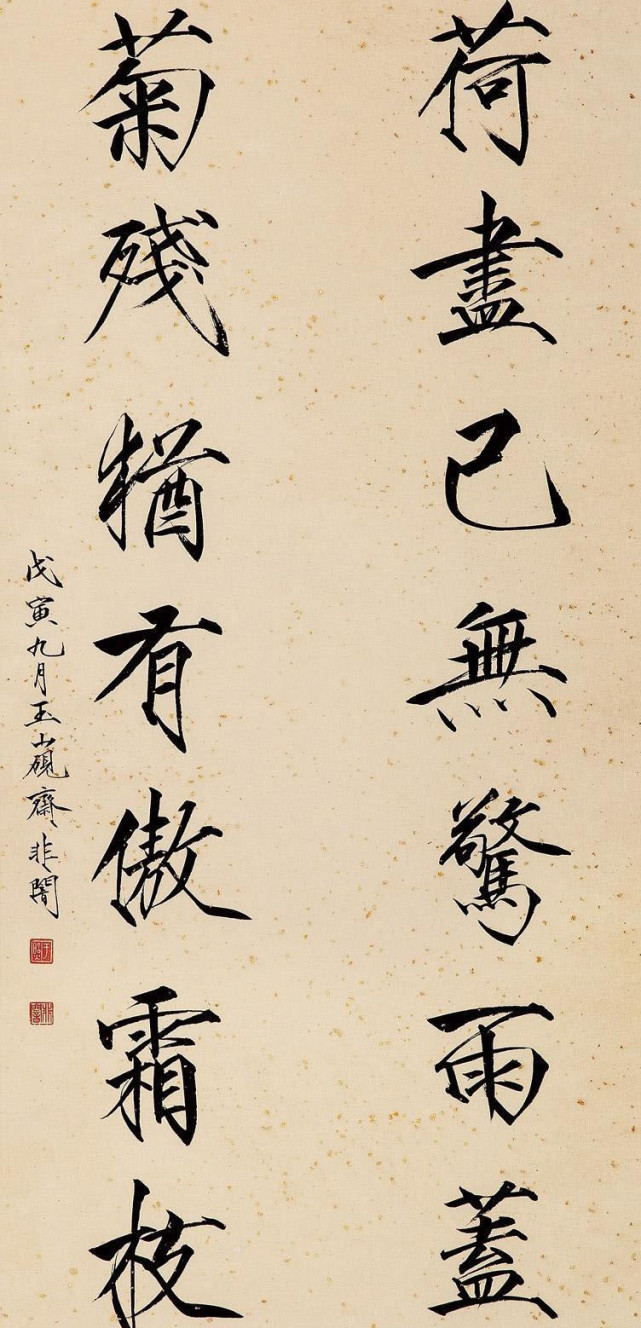 荷盡已無驚雨蓋
菊殘猶有傲霜枝
戊寅九月玉山硯齋非闇